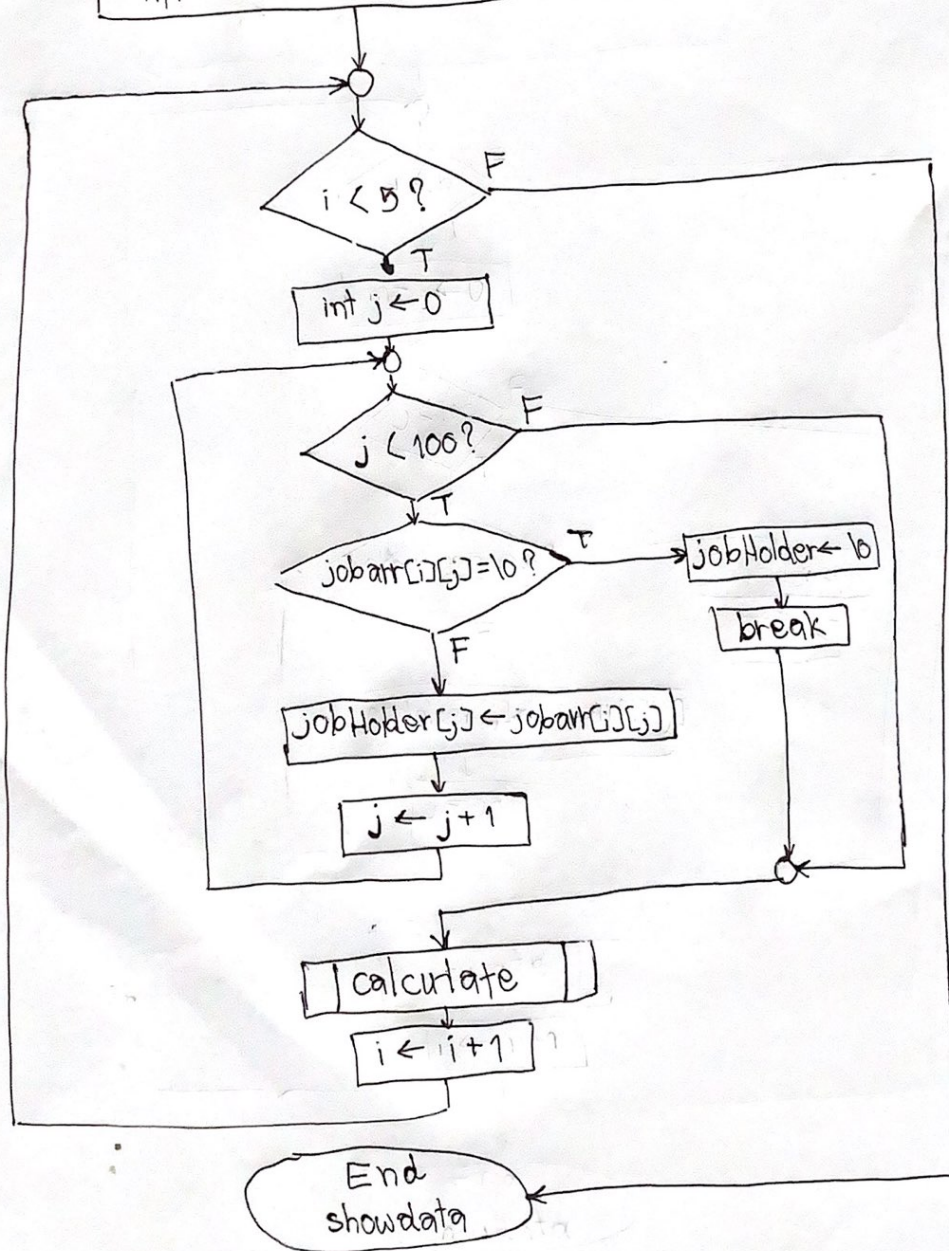 F
i < 5 ?
T
int j ← 0
F
j < 100 ?
T
T
jobarr[i][j]=\0 ?
jobHolder ← \0
break
F
jobHolder[j] ← jobarr[i][j]
j ← j + 1
calculate
i ← i + 1
End
showdata